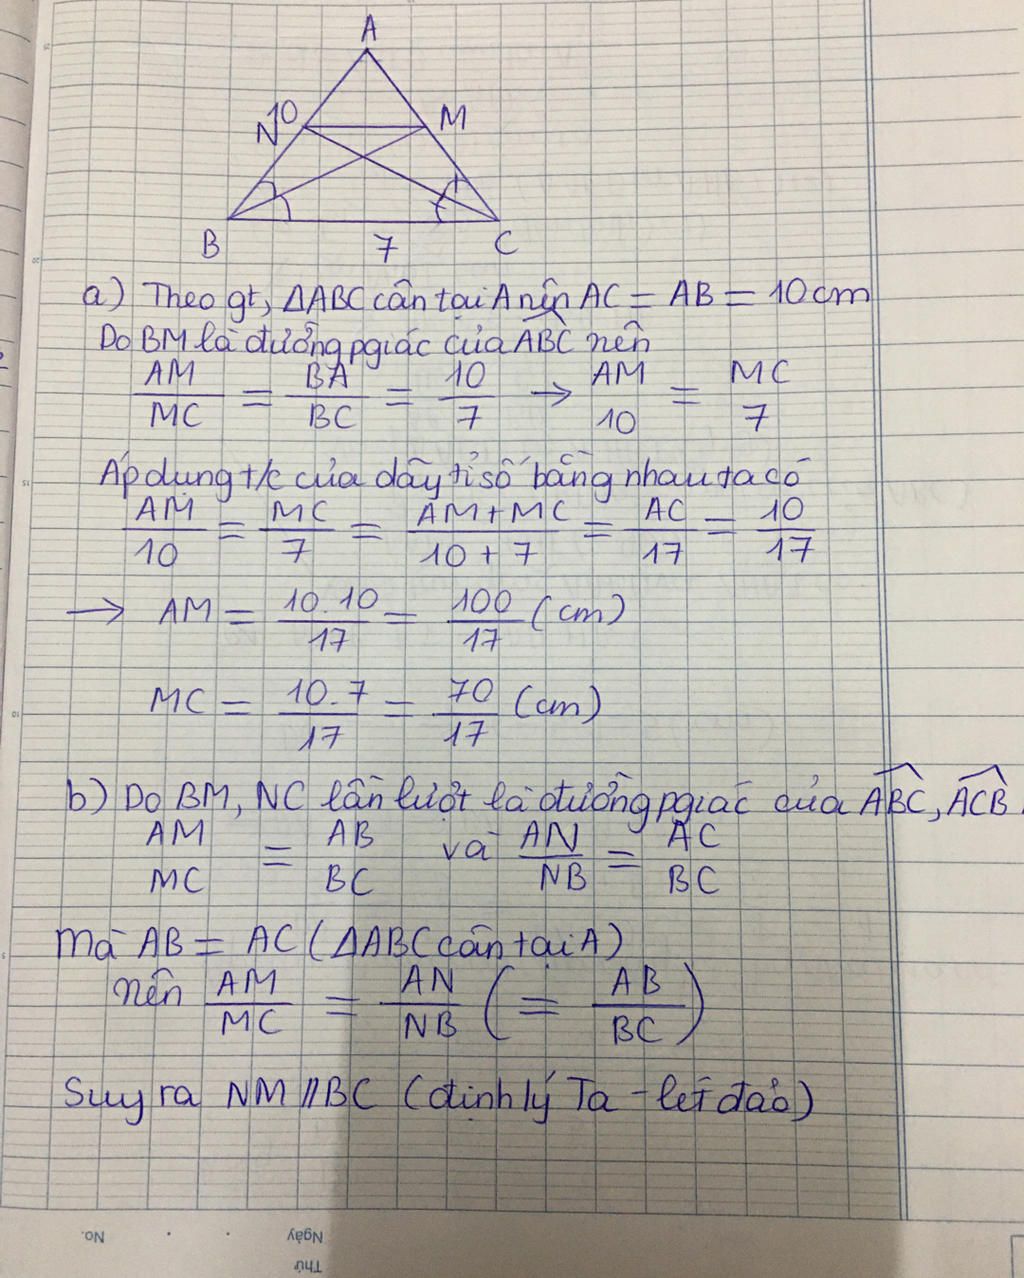 A
10
N
M
B
7
C
a) Theo gt, ΔABC cân tại A nên AC = AB = 10cm
Do BM là đường pgiác của ABC nên
AM/MC = BA/BC = 10/7 → AM/10 = MC/7
Áp dụng t/c của dãy tỉ số bằng nhau ta có
AM/10 = MC/7 = AM+MC/10+7 = AC/17 = 10/17
→ AM = 10.10/17 = 100/17 (cm)
MC = 10.7/17 = 70/17 (cm)
b) Do BM, NC lần lượt là đường pgiác của ABC, ACB
AM/MC = AB/BC và AN/NB = AC/BC
Mà AB = AC (ΔABC cân tại A)
nên AM/MC = AN/NB (= AB/BC)
Suy ra NM // BC (định lý Ta-lét đảo)
No.
Ngày
Thứ